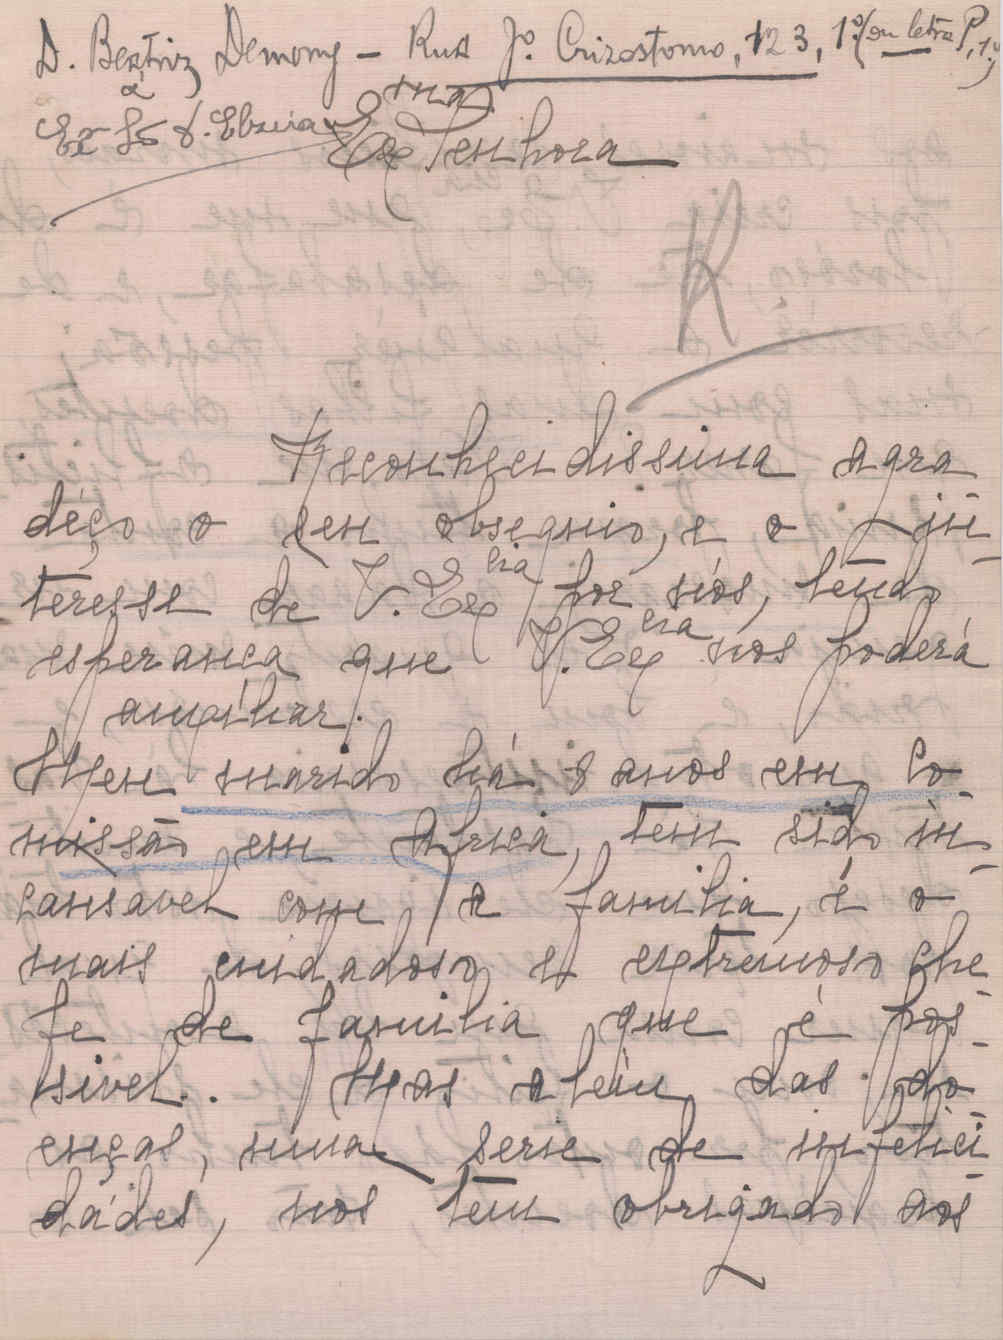 D. Beatriz Demony - Rua Jº. Crizostomo, 123, 1º (ou letra P, 1º)
à
Exª Sª D. Elzira
Exma Senhora
R
Reconhecidissima agra
déço o seu obsequio, e o in-
teresse de V. Excia por nós, tendo
esperança que V. Excia nos poderá
auxiliar.
Meu marido há 8 anos em Co-
missão em Africa, tem sido in-
cansavel com a familia, é o
mais cuidadoso e extremoso che-
fe de familia que é pos-
sivel. Mas alem das do-
enças, uma serie de infelici-
dádes, nos tem obrigado aos